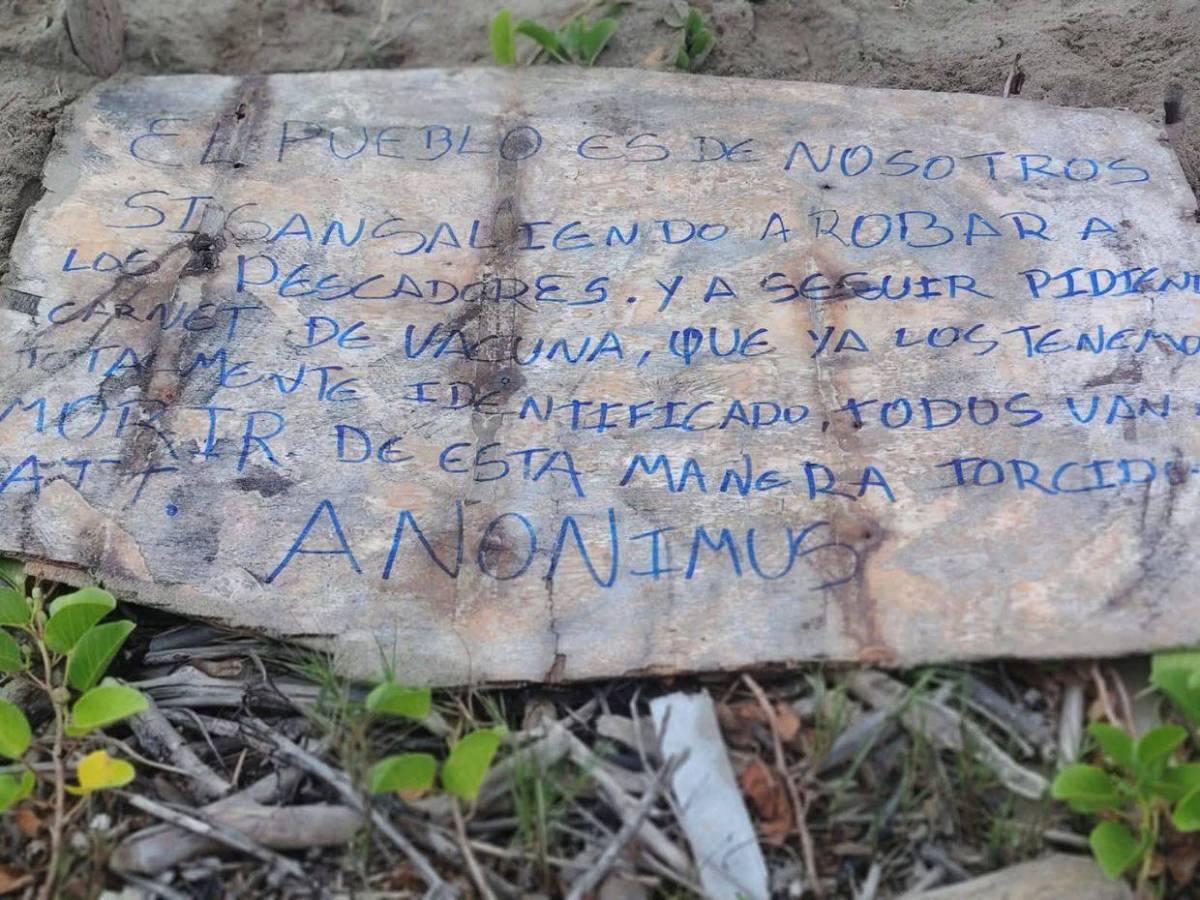 EL PUEBLO ES DE NOSOTROS
SIGAN SALIENDO A ROBAR A
LOS PESCADORES. Y A SEGUIR PIDIEN
CARNET DE VACUNA, QUE YA LOS TENEMO
TOTALMENTE IDENTIFICADO, TODOS VAN
MORIR DE ESTA MANERA TORCIDO
ATT. ANONIMUS